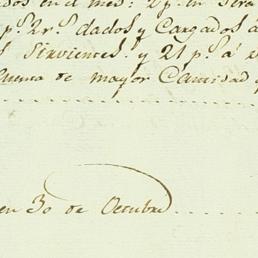 dos en el mes: 2 p.
p.s 2 r.s dados y Cargados a
Sirvientes. y 21 p.s á
Cuenta de mayor Cantidad
en 30 de Octubre